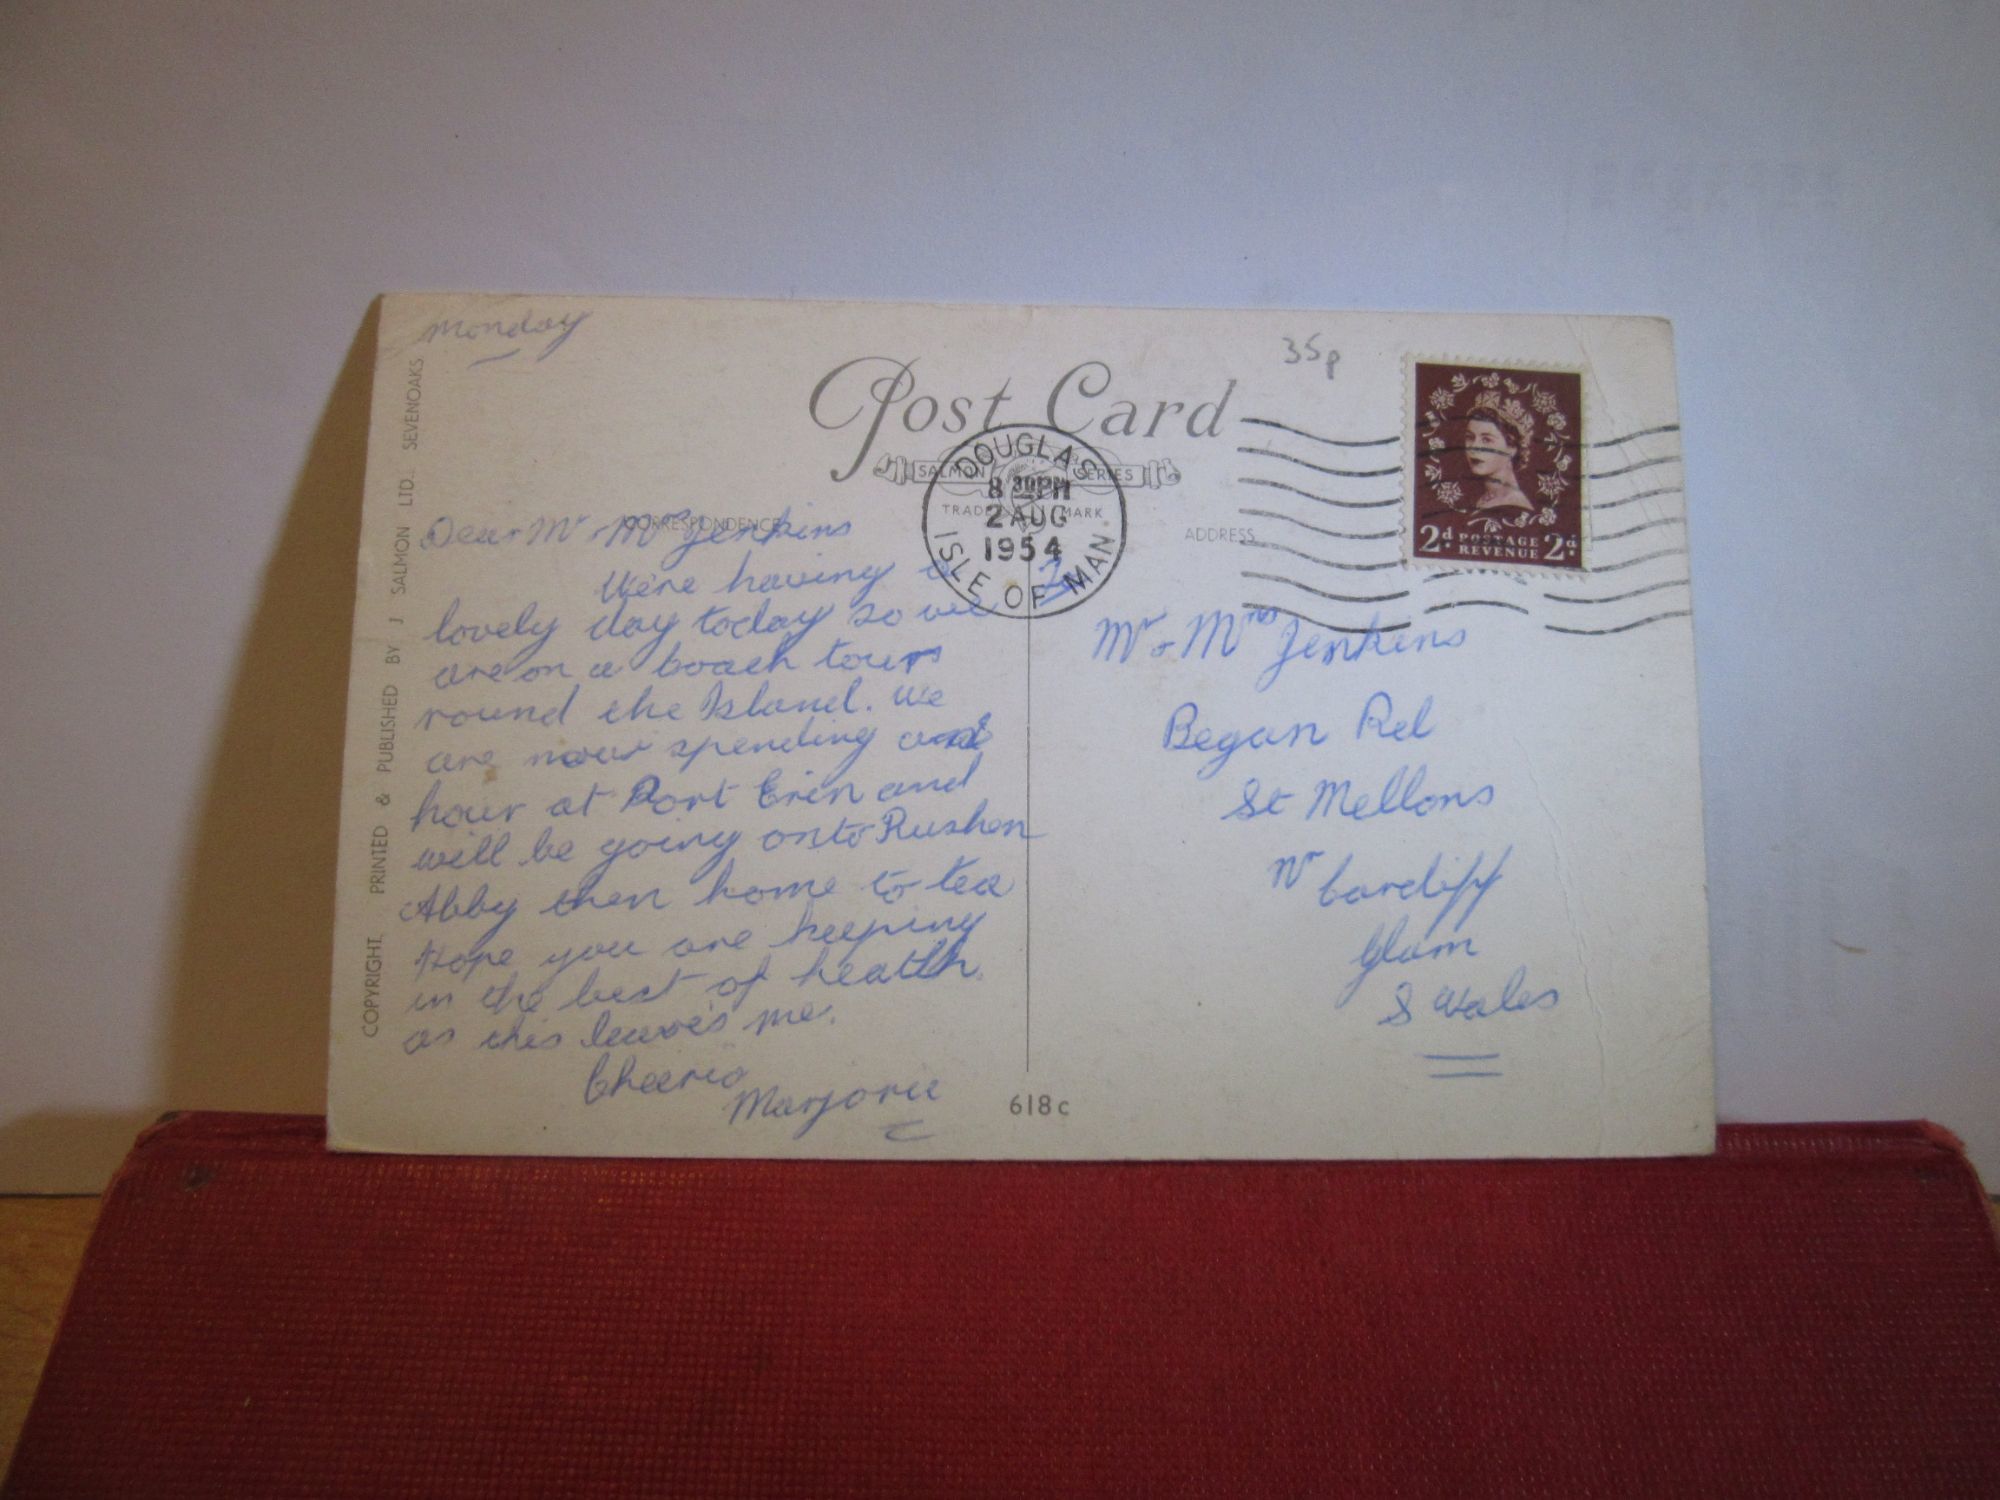 Monday
Post Card
35p
SALMON SERIES
TRADE MARK
DOUGLAS
8 30PM
2 AUG
1954
ISLE OF MAN
2d POSTAGE REVENUE 2d
CORRESPONDENCE
ADDRESS
Dear Mr & Mrs Jenkins
We're having a
lovely day today so we
are on a coach tour
round the Island. We
are now spending an
hour at Port Erin and
will be going onto Rushen
Abby then home to tea
Hope you are keeping
in the best of health
as this leaves me.
Cheerio
Marjorie
To
Mr & Mrs Jenkins
Began Rd
St Mellons
Nr Cardiff
Glam
S Wales
618c
COPYRIGHT. PRINTED & PUBLISHED BY J SALMON LTD. SEVENOAKS